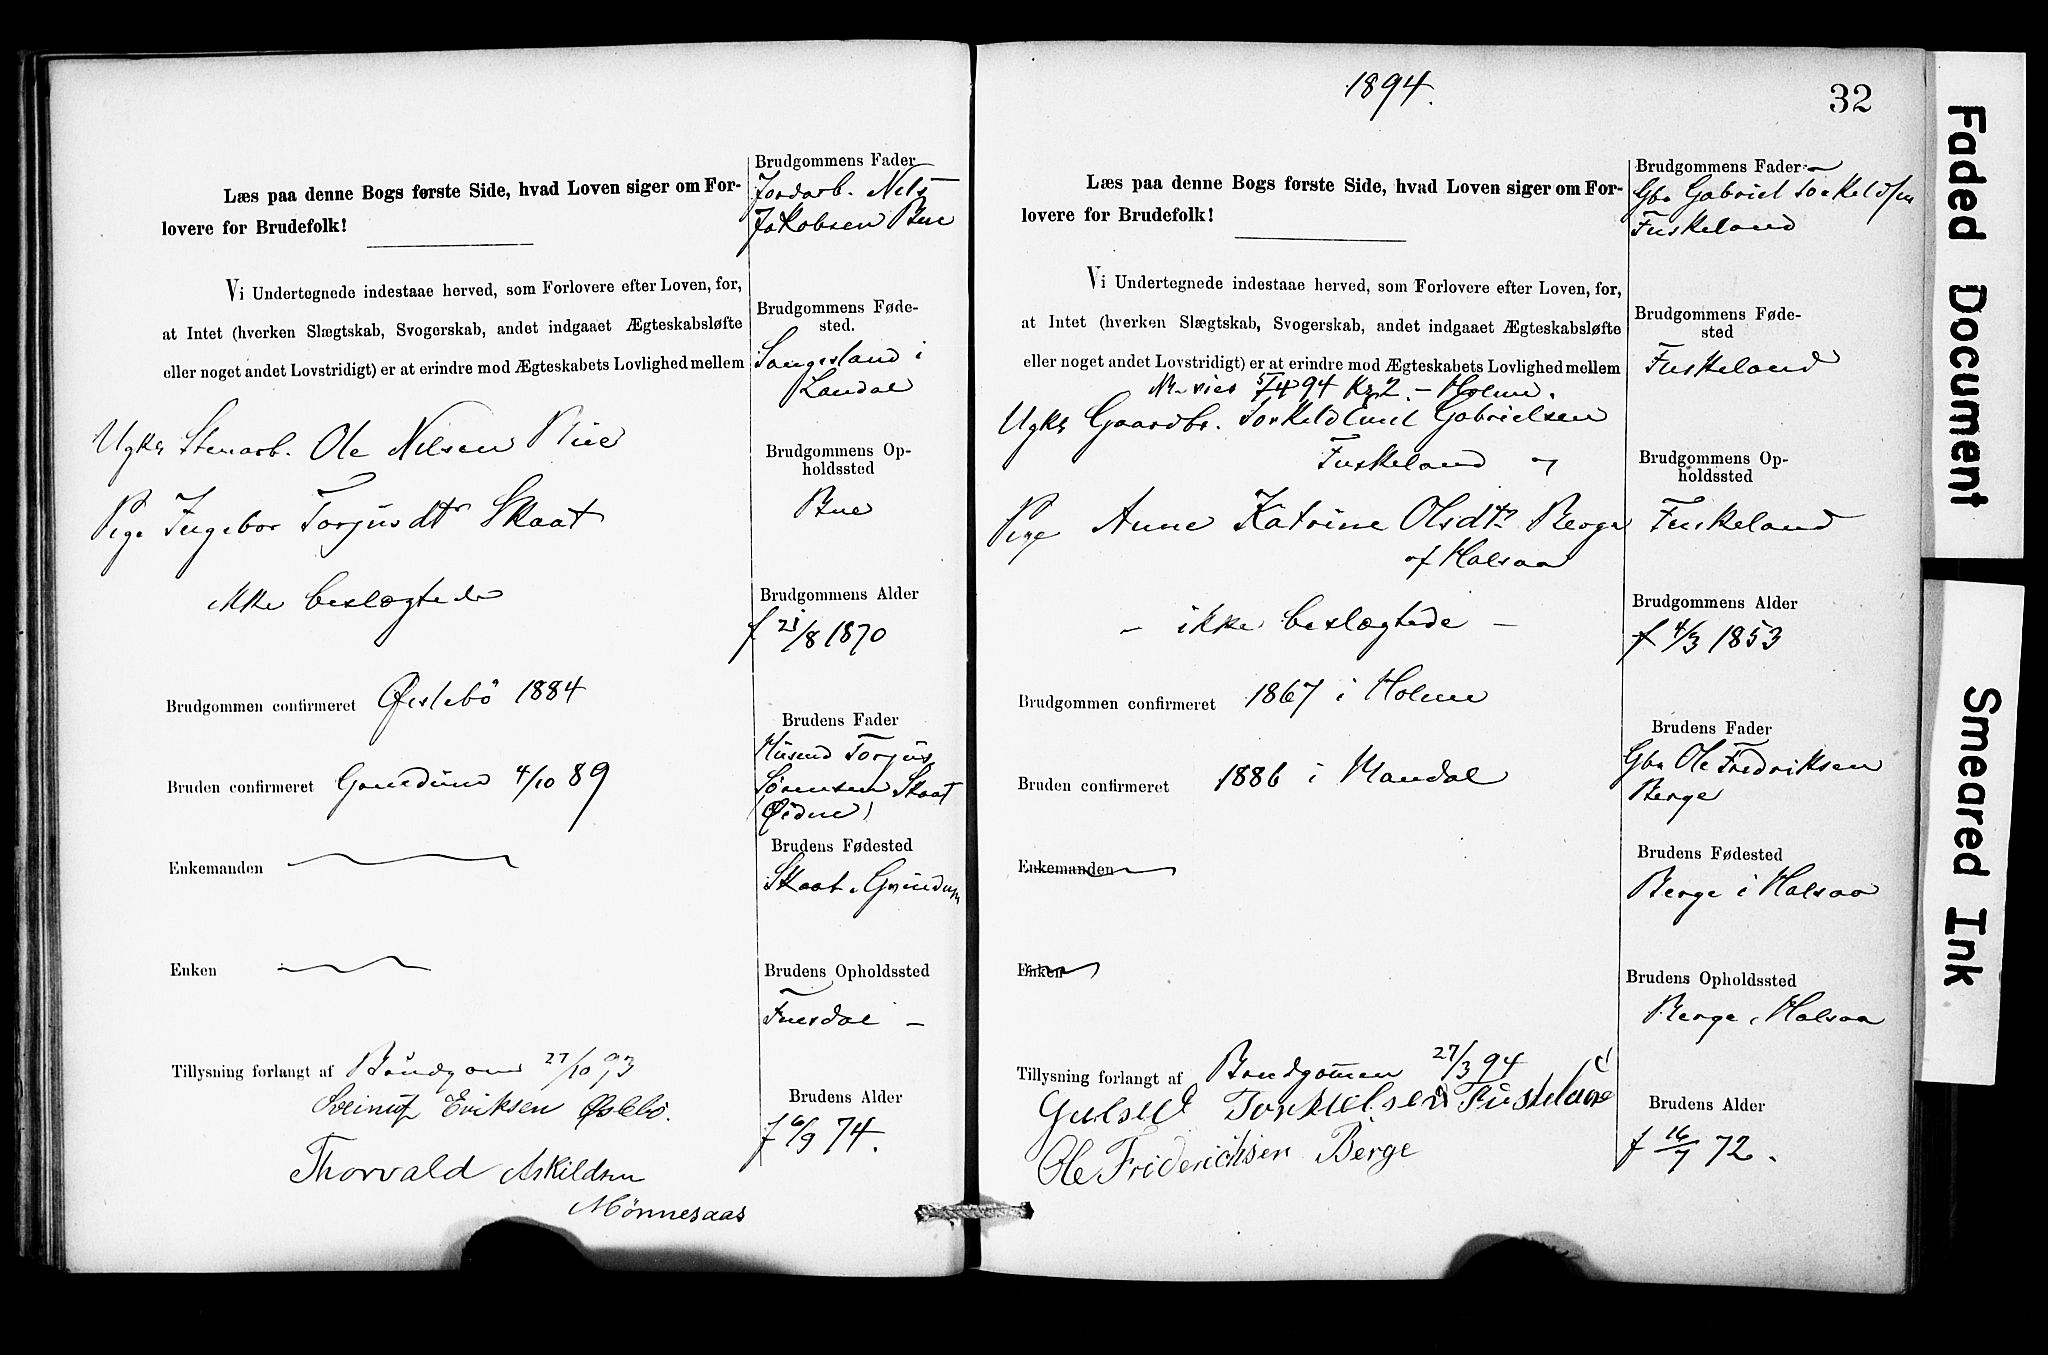 Læs paa denne Bogs første Side, hvad Loven siger om For-
lovere for Brudefolk!
Vi Undertegnede indestaae herved, som Forlovere efter Loven, for,
at Intet (hverken Slægtskab, Svogerskab, andet indgaaet Ægteskabsløfte
eller noget andet Lovstridigt) er at erindre mod Ægteskabets Lovlighed mellem
Ugkr Stenarb. Ole Nilsen Bue
Pige Ingebor Torjusdtr Skaat
ikke beslægtede
Brudgommen confirmeret Øislebö 1884
Bruden confirmeret Grindum 4/10 89
Enkemanden
Enken
Tillysning forlangt af Brudgom 27/10 93
Sveinuf Eriksen Øslebö.
Thorvald Askildsen
Mønnesaas
Brudgommens Fader
Jordarb. Nils
Jakobsen Bue
Brudgommens Føde-
sted.
Sangesland i
Laudal
Brudgommens Op-
holdssted
Bue
Brudgommens Alder
f 21/8 1870
Brudens Fader
Husmd Torjus
Sørensen Skaat
(Øidne)
Brudens Fødested
Skaat, Grindum
Brudens Opholdssted
Fuesdal –
Brudens Alder
f 6/9 74.
1894.
32
Læs paa denne Bogs første Side, hvad Loven siger om For-
lovere for Brudefolk!
Vi Undertegnede indestaae herved, som Forlovere efter Loven, for,
at Intet (hverken Slægtskab, Svogerskab, andet indgaaet Ægteskabsløfte
eller noget andet Lovstridigt) er at erindre mod Ægteskabets Lovlighed mellem
vies 5/4 94 Kr. 2. – Holme.
Ugkr Gaardbr. Torkeld Emil Gabrielsen
Fuskeland og
Pige Anne Katrine Olsdtr Berge
af Halsaa
– ikke beslægtede –
Brudgommen confirmeret 1867 i Holme
Bruden confirmeret 1886 i Mandal
Enkemanden
Enken
Tillysning forlangt af Brudgommen 27/3 94
Torkielsen Fuskeland
Ole Friderichsen Berge
Brudgommens Fader
Gbr Gabriel Torkeldsen
Fuskeland
Brudgommens Føde-
sted
Fuskeland
Brudgommens Op-
holdssted
Fuskeland
Brudgommens Alder
f 4/3 1853
Brudens Fader
Gbr Ole Fredriksen
Berge
Brudens Fødested
Berge i Halsaa
Brudens Opholdssted
Berge, Halsaa
Brudens Alder
f 16/7 72.
Faded Document
Smeared Ink